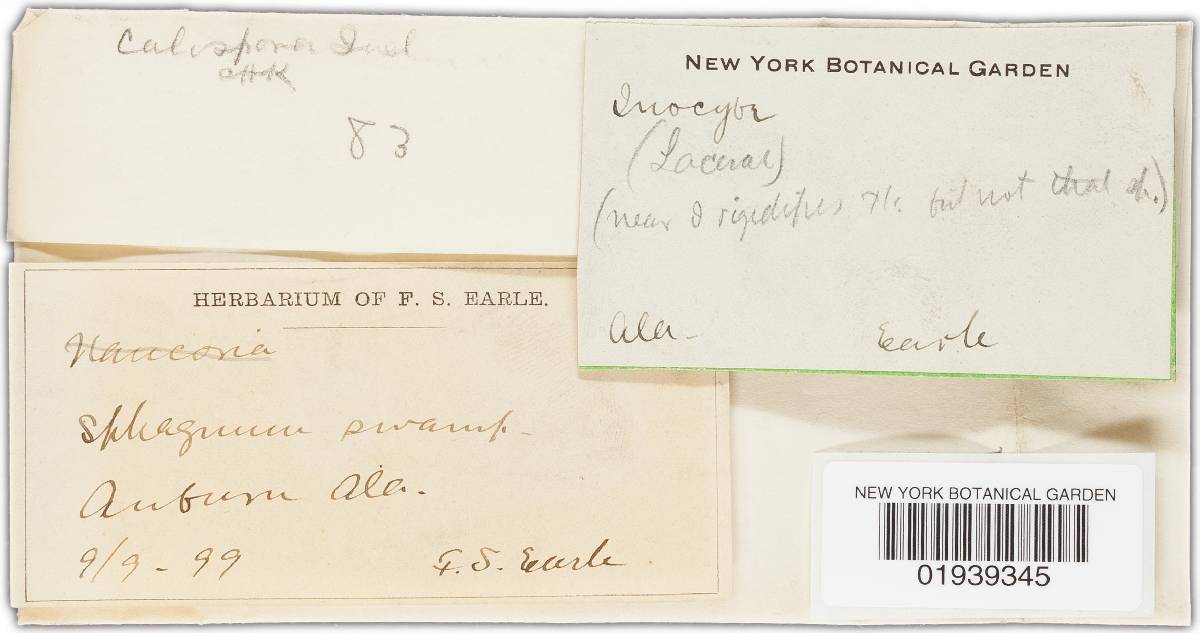 Calospora Ined
CHK
83
NEW YORK BOTANICAL GARDEN
Inocybe
(Lacerae)
(near I rigidipes Pk. but not that sp.)
Ala.
Earle
HERBARIUM OF F. S. EARLE.
Naucoria
Sphagnum swamp
Auburn Ala.
9/9-99
F. S. Earle
NEW YORK BOTANICAL GARDEN
01939345